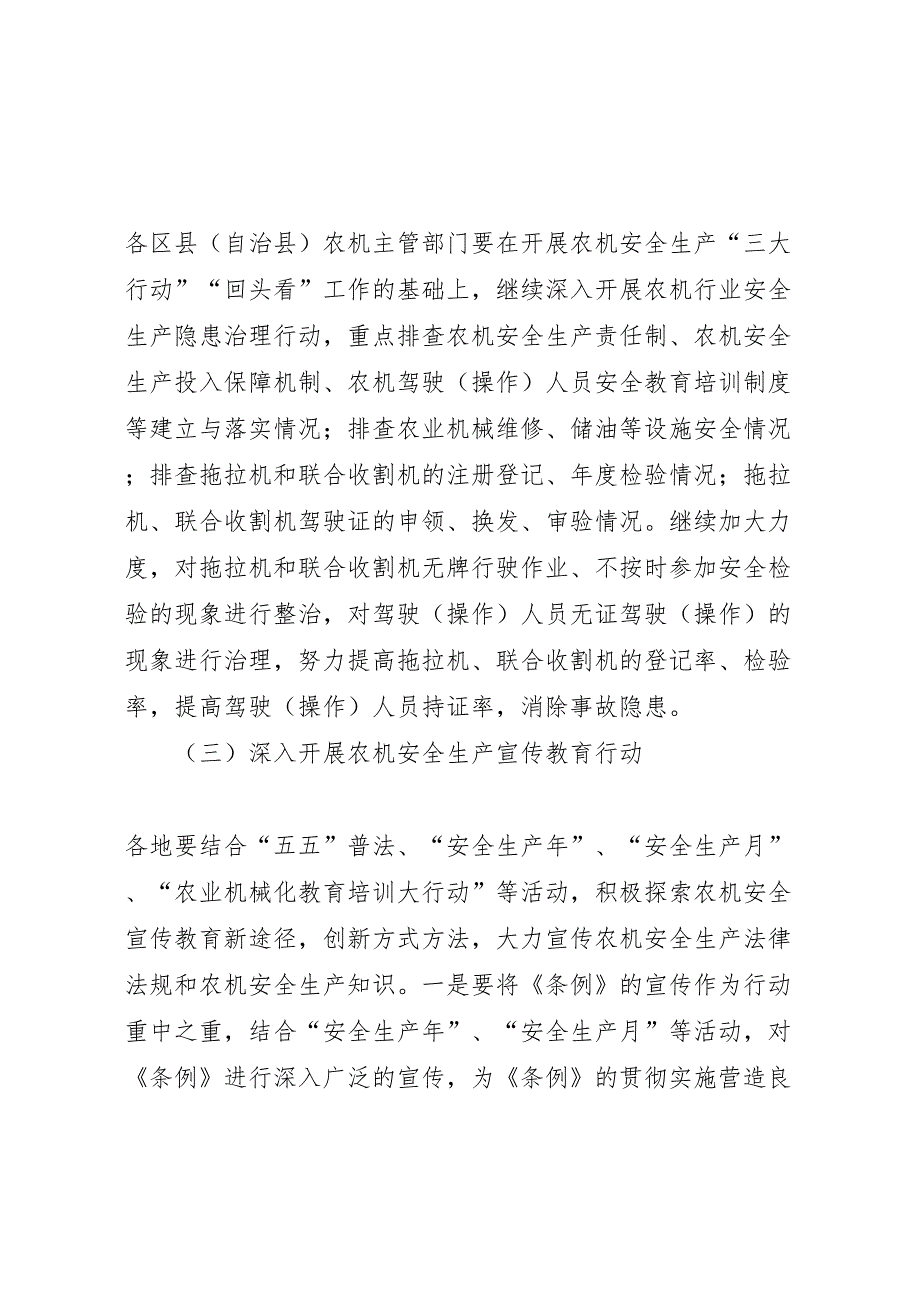 各区县（自治县）农机主管部门要在开展农机安全生产“三大
行动”“回头看”工作的基础上，继续深入开展农机行业安全
生产隐患治理行动，重点排查农机安全生产责任制、农机安全
生产投入保障机制、农机驾驶（操作）人员安全教育培训制度
等建立与落实情况；排查农业机械维修、储油等设施安全情况
；排查拖拉机和联合收割机的注册登记、年度检验情况；拖拉
机、联合收割机驾驶证的申领、换发、审验情况。继续加大力
度，对拖拉机和联合收割机无牌行驶作业、不按时参加安全检
验的现象进行整治，对驾驶（操作）人员无证驾驶（操作）的
现象进行治理，努力提高拖拉机、联合收割机的登记率、检验
率，提高驾驶（操作）人员持证率，消除事故隐患。
（三）深入开展农机安全生产宣传教育行动
各地要结合“五五”普法、“安全生产年”、“安全生产月”
、“农业机械化教育培训大行动”等活动，积极探索农机安全
宣传教育新途径，创新方式方法，大力宣传农机安全生产法律
法规和农机安全生产知识。一是要将《条例》的宣传作为行动
重中之重，结合“安全生产年”、“安全生产月”等活动，对
《条例》进行深入广泛的宣传，为《条例》的贯彻实施营造良